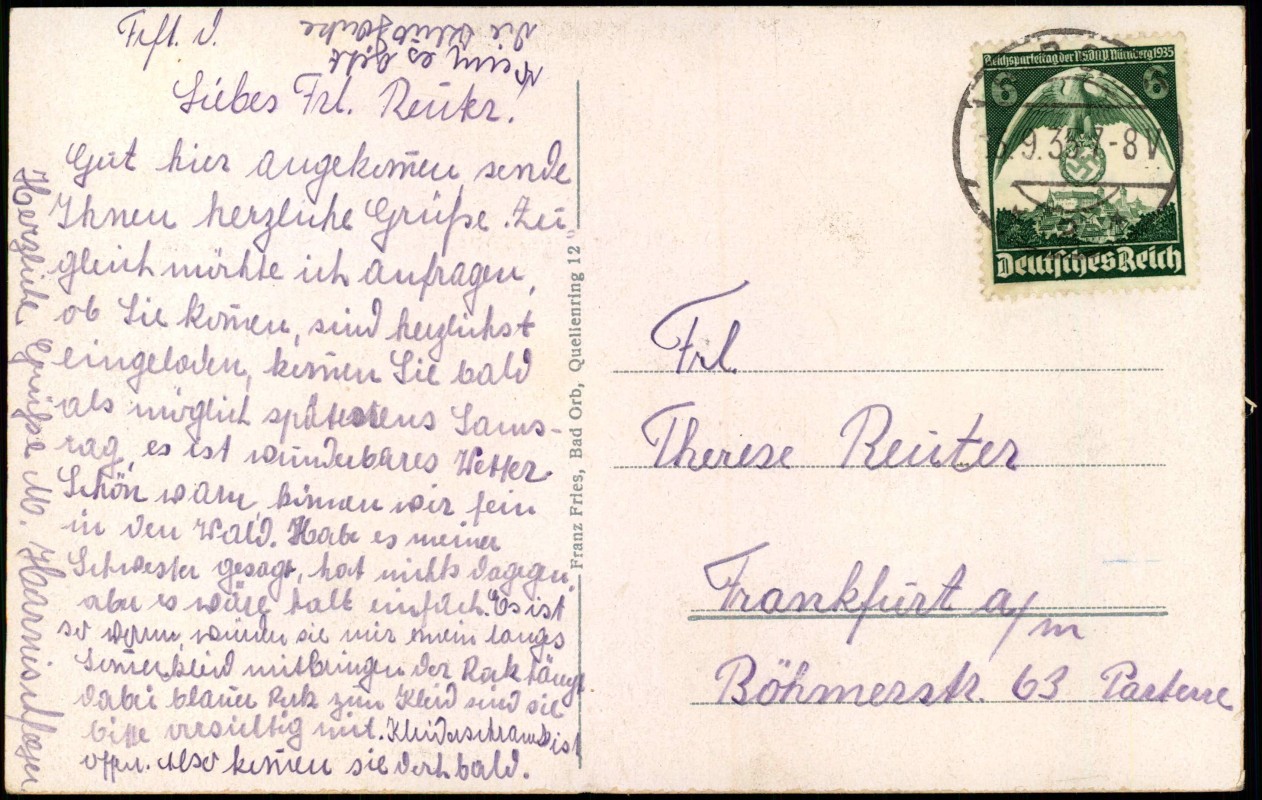 Frft. d.
Liebes Frl. Reuter!
Gut hier angekom̄en sende
Ihnen herzliche Grüße. Zu-
gleich möchte ich anfragen,
ob Sie kom̄en, sind herzlichst
eingeladen, kom̄en Sie bald
als möglich spätestens Sams-
tag, es ist wunderbares Wetter
Schön warm, kön̄en wir fein
in den Wald. Habe es meiner
Schwester gesagt, hat nichts dagegen,
aber es wäre halt einfach. Es ist
so warm, würden sie mir mein langes
Som̄erkleid mitbringen der Rock hängt
dabei blauer Rock zum Kleid sind sie
bitte vorsichtig mit. Kleiderschrank ist
offen. Also kom̄en sie doch bald.
Herzliche Grüße M.
Franz Fries, Bad Orb, Quellenring 12
Reichsparteitag der NSDAP Nürnberg 1935
6 6
9.35.7-8V
Deutsches Reich
Frl.
Therese Reuter
Frankfurt a/m
Böhmerstr. 63 Parterre